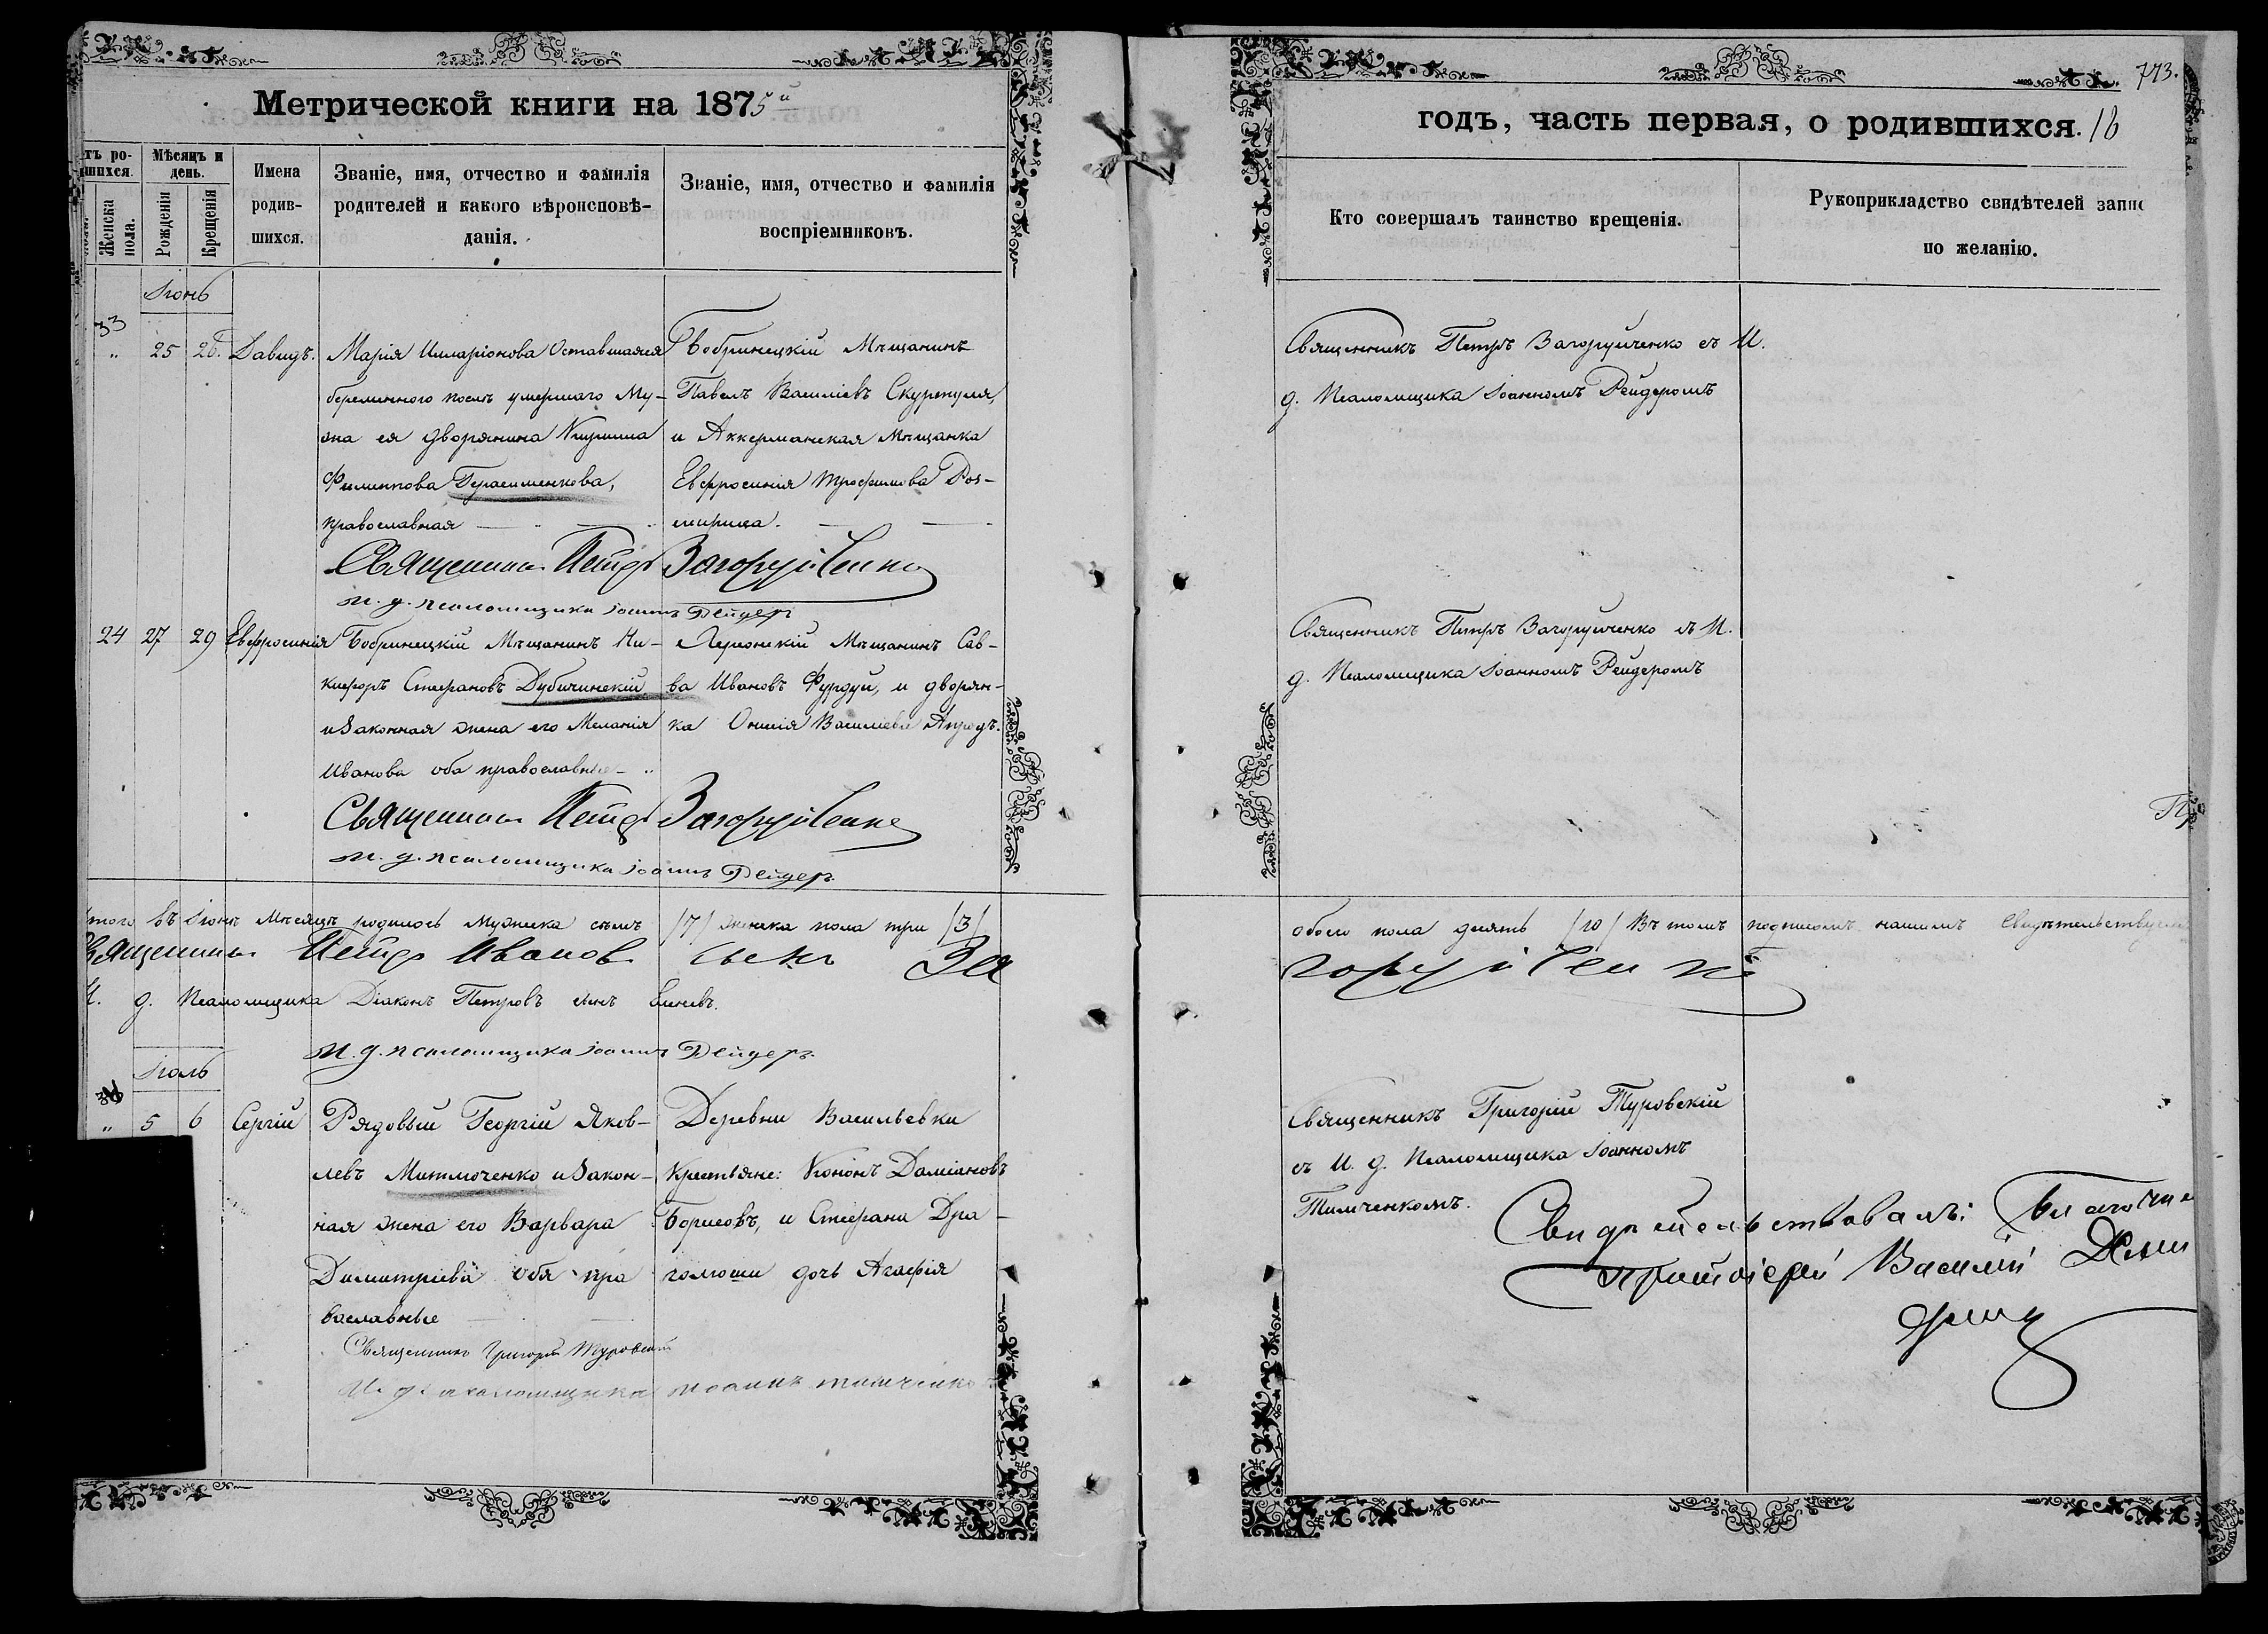 Метрической книги на 1875й
тъ ро-
шихся.
Женска
пола.
Мѣсяцъ и
день.
Рожденія
Крещенія
Имена
родив-
шихся.
Званіе, имя, отчество и фамилія
родителей и какого вѣроисповѣ-
данія.
Званіе, имя, отчество и фамилія
воспріемниковъ.
Іюнь
33
" 25 26. Давидъ.
Марія Илларіонова Оставшаяся
беременною послѣ умершаго Му-
жа ея дворянина
Филиппова Герасименкова,
православная
Бобринецкій Мѣщанинъ
Павелъ Василіевъ Скурепуля,
и Аккерманская Мѣщанка
Евфросинія Трофимова Роз-
мирица.
Священникъ Петръ Загоруйченко
и. д. псаломщика Іоаннъ Рейдеръ
24 27 29 Евфросинія
Бобринецкій Мѣщанинъ Ни-
кифоръ Стефановъ Дубичинскій
и Законная жена его Меланія
Иванова оба православные
Херсонскій Мѣщанинъ Сав-
ва Ивановъ Фурдуй, и дворян-
ка Василіева
Священникъ Петръ Загоруйченко
и. д. псаломщика Іоаннъ Рейдеръ
того въ Іюнѣ Мѣсяцѣ родилось Мужеска семь /7/ женска пола три /3/
Священникъ Петръ Иванов сынъ За
И. д. Псаломщика Діаконъ Петровъ сынъ
И. д. псаломщика Іоаннъ Рейдеръ.
Іюль
" 5 6 Сергій
Рядовый Георгій Яков-
левъ Митлюченко и Закон-
ная жена его Варвара
Димитріева оба пра
вославные
Деревни Васильевки
Крестьяне: Кононъ Даміановъ
Борисовъ, и Стефана Дра-
голюши дочь Агафія
Священникъ Григорій Туровскій
И. д. псаломщика Іоаннъ Тимченко
743.
годъ, часть первая, о родившихся. 16
Кто совершалъ таинство крещенія.
Рукоприкладство свидѣтелей запис
по желанію.
Священникъ Петръ Загоруйченко съ И.
д. Псаломщика Іоанномъ Рейдеромъ
Священникъ Петръ Загоруйченко съ И.
д. Псаломщика Іоанномъ Рейдеромъ
Пр
обоего пола десять /10/ Въ томъ подписомъ нашимъ Свидѣтельствуемъ
горуйченко
Священникъ Григорій Туровскій
съ И. д. Псаломщика Іоанномъ
Тимченкомъ.
Свидѣтельствовалъ: Благочи
протоіерей Василій